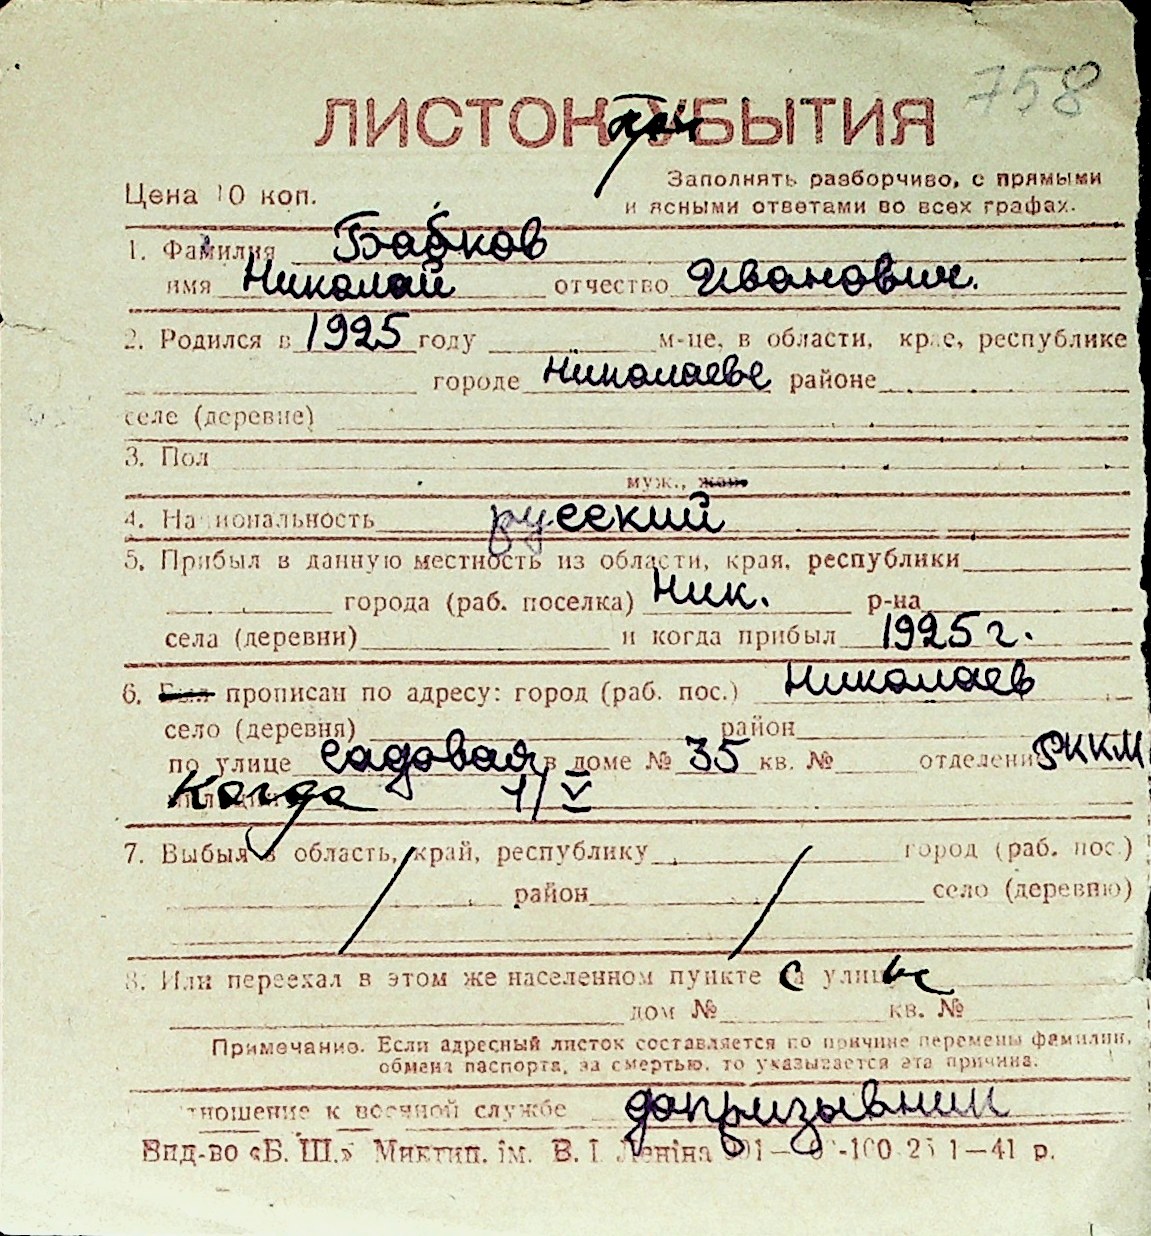 758
ЛИСТОК УБЫТИЯ
Цена 10 коп.
Заполнять разборчиво, с прямыми
и ясными ответами во всех графах.
1. Фамилия Бабков
имя Николай отчество Иванович.
2. Родился в 1925 году м-це, в области, крае, республике
городе Николаеве районе
селе (деревне)
3. Пол
муж., жен.
4. Национальность русский
5. Прибыл в данную местность из области, края, республики
города (раб. поселка) Ник. р-на
села (деревни) и когда прибыл 1925 г.
6. Был прописан по адресу: город (раб. пос.) Николаев
село (деревня) район
по улице садовая в доме № 35 кв. № отделение РККМ
Когда 1/V
7. Выбыл в область, край, республику город (раб. пос.)
район село (деревню)
8. Или переехал в этом же населенном пункте с улицы
дом № кв. №
Примечание. Если адресный листок составляется по причине перемены фамилии,
обмена паспорта, за смертью, то указывается эта причина.
Отношение к военной службе допризывник
Вид-во «Б. Ш.» Миктип. ім. В. І. Леніна 1—41 р.